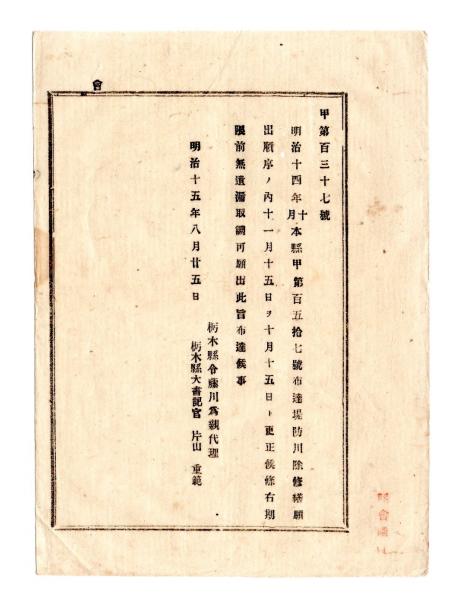 會
甲第百三十七號
明治十四年十月本縣甲第百五拾七號布達堤防川除修繕願
出順序ノ內十一月十五日ヲ十月十五日ト更正候條右期
限前無遺漏取調可願出此旨布達候事
明治十五年八月廿五日
栃木縣令藤川爲親代理
栃木縣大書記官 片山重範